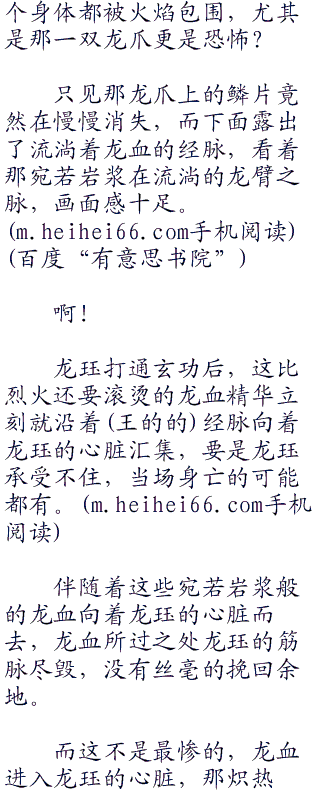 个身体都被火焰包围，尤其
是那一双龙爪更是恐怖？
只见那龙爪上的鳞片竟
然在慢慢消失，而下面露出
了流淌着龙血的经脉，看着
那宛若岩浆在流淌的龙臂之
脉，画面感十足。
(m.heihei66.com手机阅读)
(百度“有意思书院”)
啊！
龙珏打通玄功后，这比
烈火还要滚烫的龙血精华立
刻就沿着(王的的)经脉向着
龙珏的心脏汇集，要是龙珏
承受不住，当场身亡的可能
都有。(m.heihei66.com手机
阅读)
伴随着这些宛若岩浆般
的龙血向着龙珏的心脏而
去，龙血所过之处龙珏的筋
脉尽毁，没有丝毫的挽回余
地。
而这不是最惨的，龙血
进入龙珏的心脏，那炽热